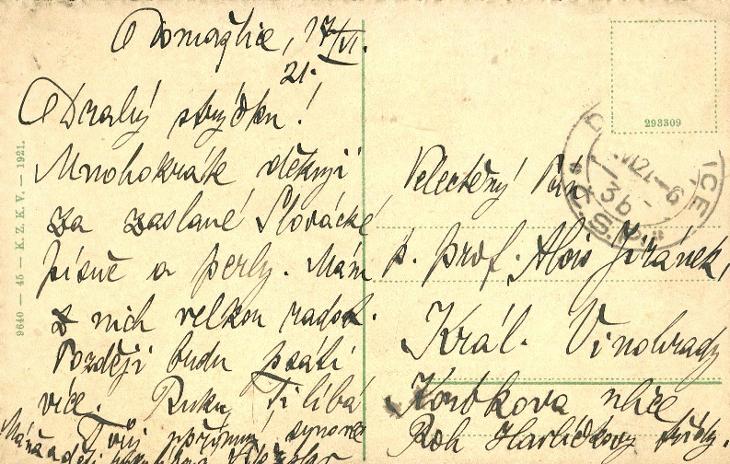 Domažlice, 17/VI.
21.
Drahý strýčku!
Mnohokráte děkuji
za zaslané Slovácké
písně a perly. Mám
z nich velkou radost.
Později budu psáti
více. Ruku Ti líbá
Tvůj upřímný synovec
Velectěný Pán
p. prof. Alois Jiránek,
Král. Vinohrady
Korbkova ulice
Roh Havlíčkovy třídy.
293309
9640 — 45 — K. Z. K. V. — 1921.